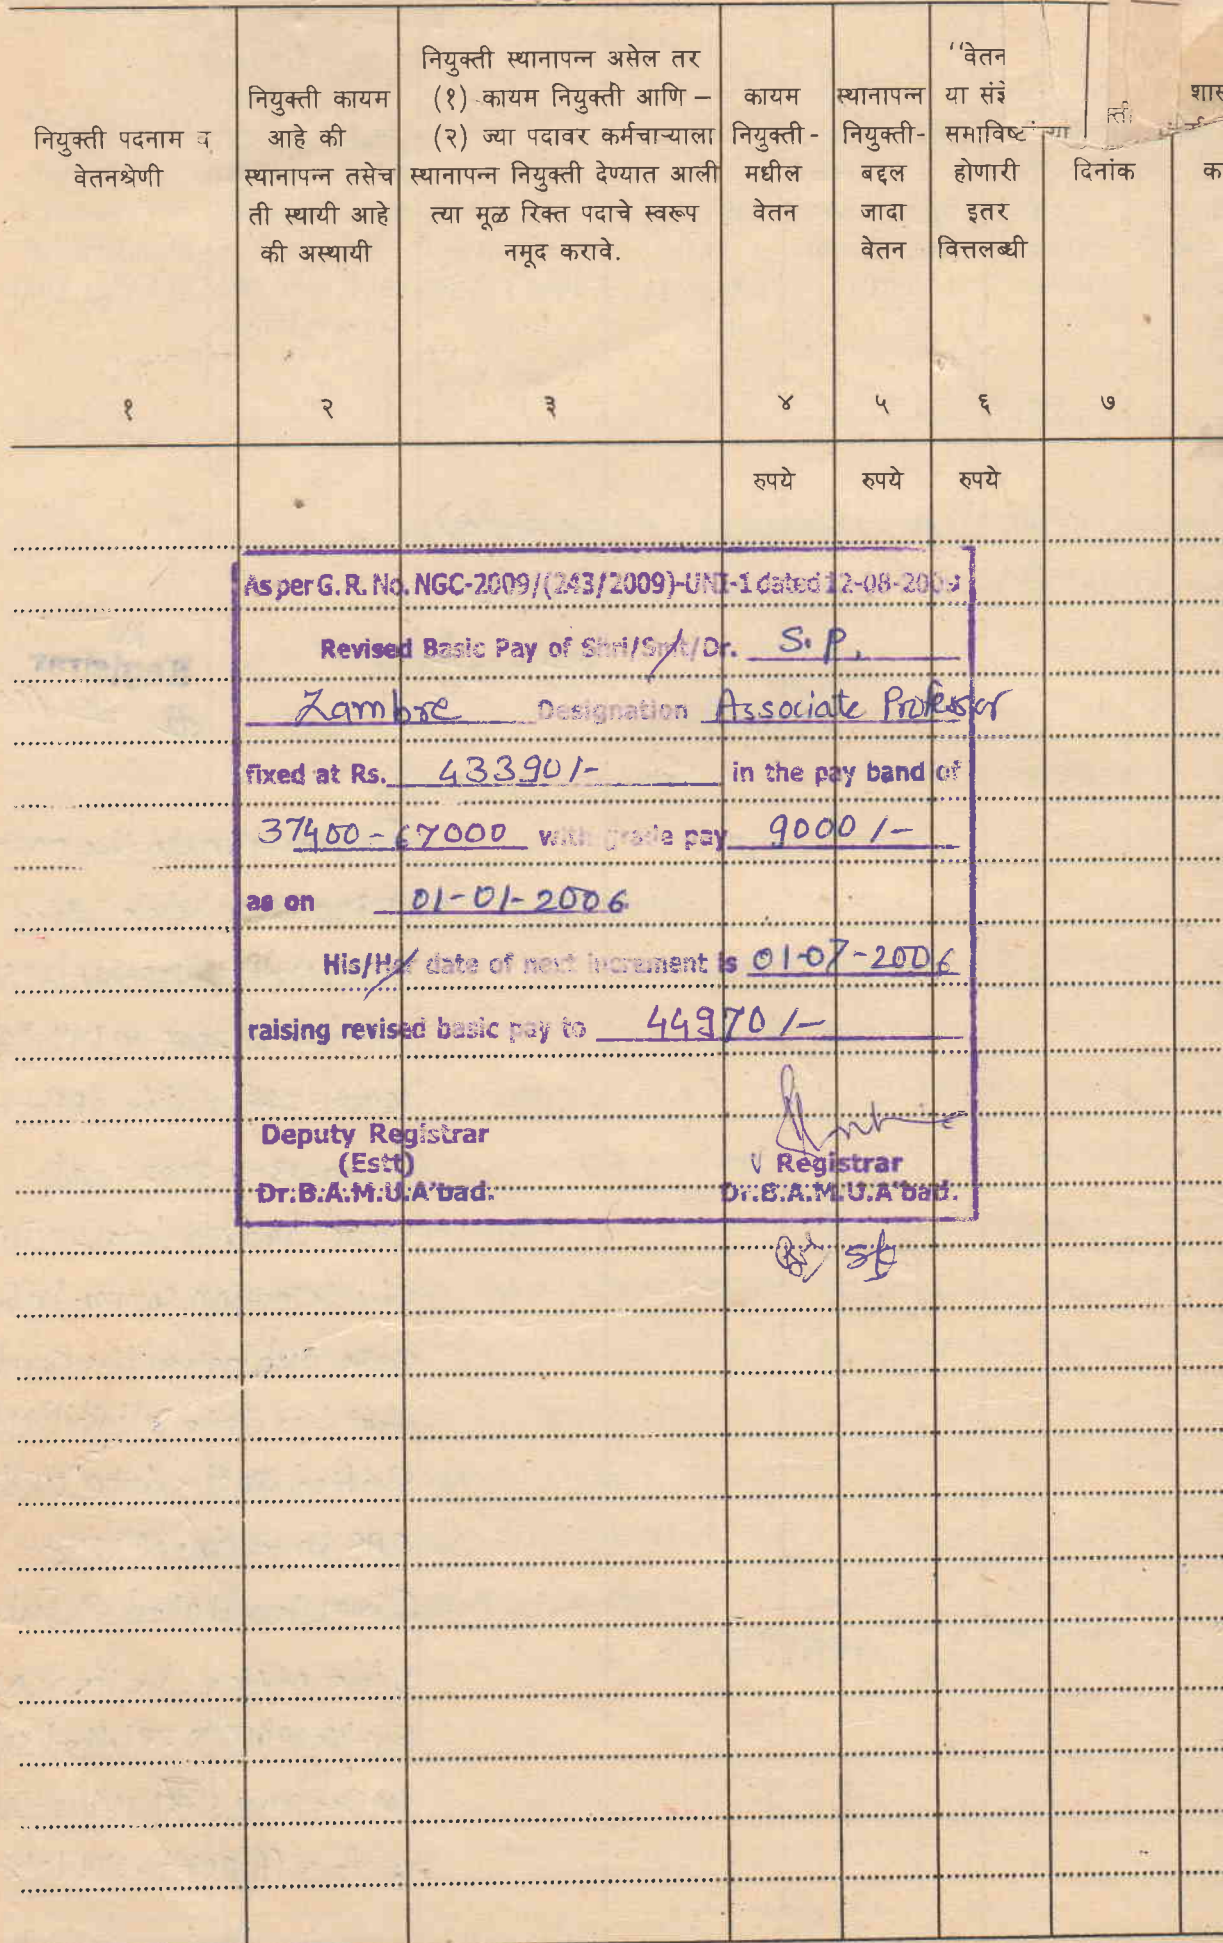 नियुक्ती पदनाम व
वेतनश्रेणी
नियुक्ती कायम
आहे की
स्थानापन्न तसेच
ती स्थायी आहे
की अस्थायी
नियुक्ती स्थानापन्न असेल तर
(१) कायम नियुक्ती आणि –
(२) ज्या पदावर कर्मचाऱ्याला
स्थानापन्न नियुक्ती देण्यात आली
त्या मूळ रिक्त पदाचे स्वरूप
नमूद करावे.
कायम
नियुक्ती-
मधील
वेतन
स्थानापन्न
नियुक्ती-
बद्दल
जादा
वेतन
"वेतन
या
समाविष्ट
होणारी
इतर
वित्तलब्धी
दिनांक
१ २ ३ ४ ५ ६ ७
रुपये रुपये रुपये
As per G. R. No. NGC-2009/(243/2009)-UNI-1 dated 12-08-2009
Revised Basic Pay of Shri/Smt/Dr. S. P.
Zambre Designation Associate Professor
fixed at Rs. 43390/- in the pay band of
37400-67000 with grade pay 9000/-
as on 01-01-2006
His/Her date of next increment is 01-07-2006
raising revised basic pay to 44970/-
Deputy Registrar
(Estt)
Dr.B.A.M.U.A'bad.
Registrar
Dr.B.A.M.U.A'bad.